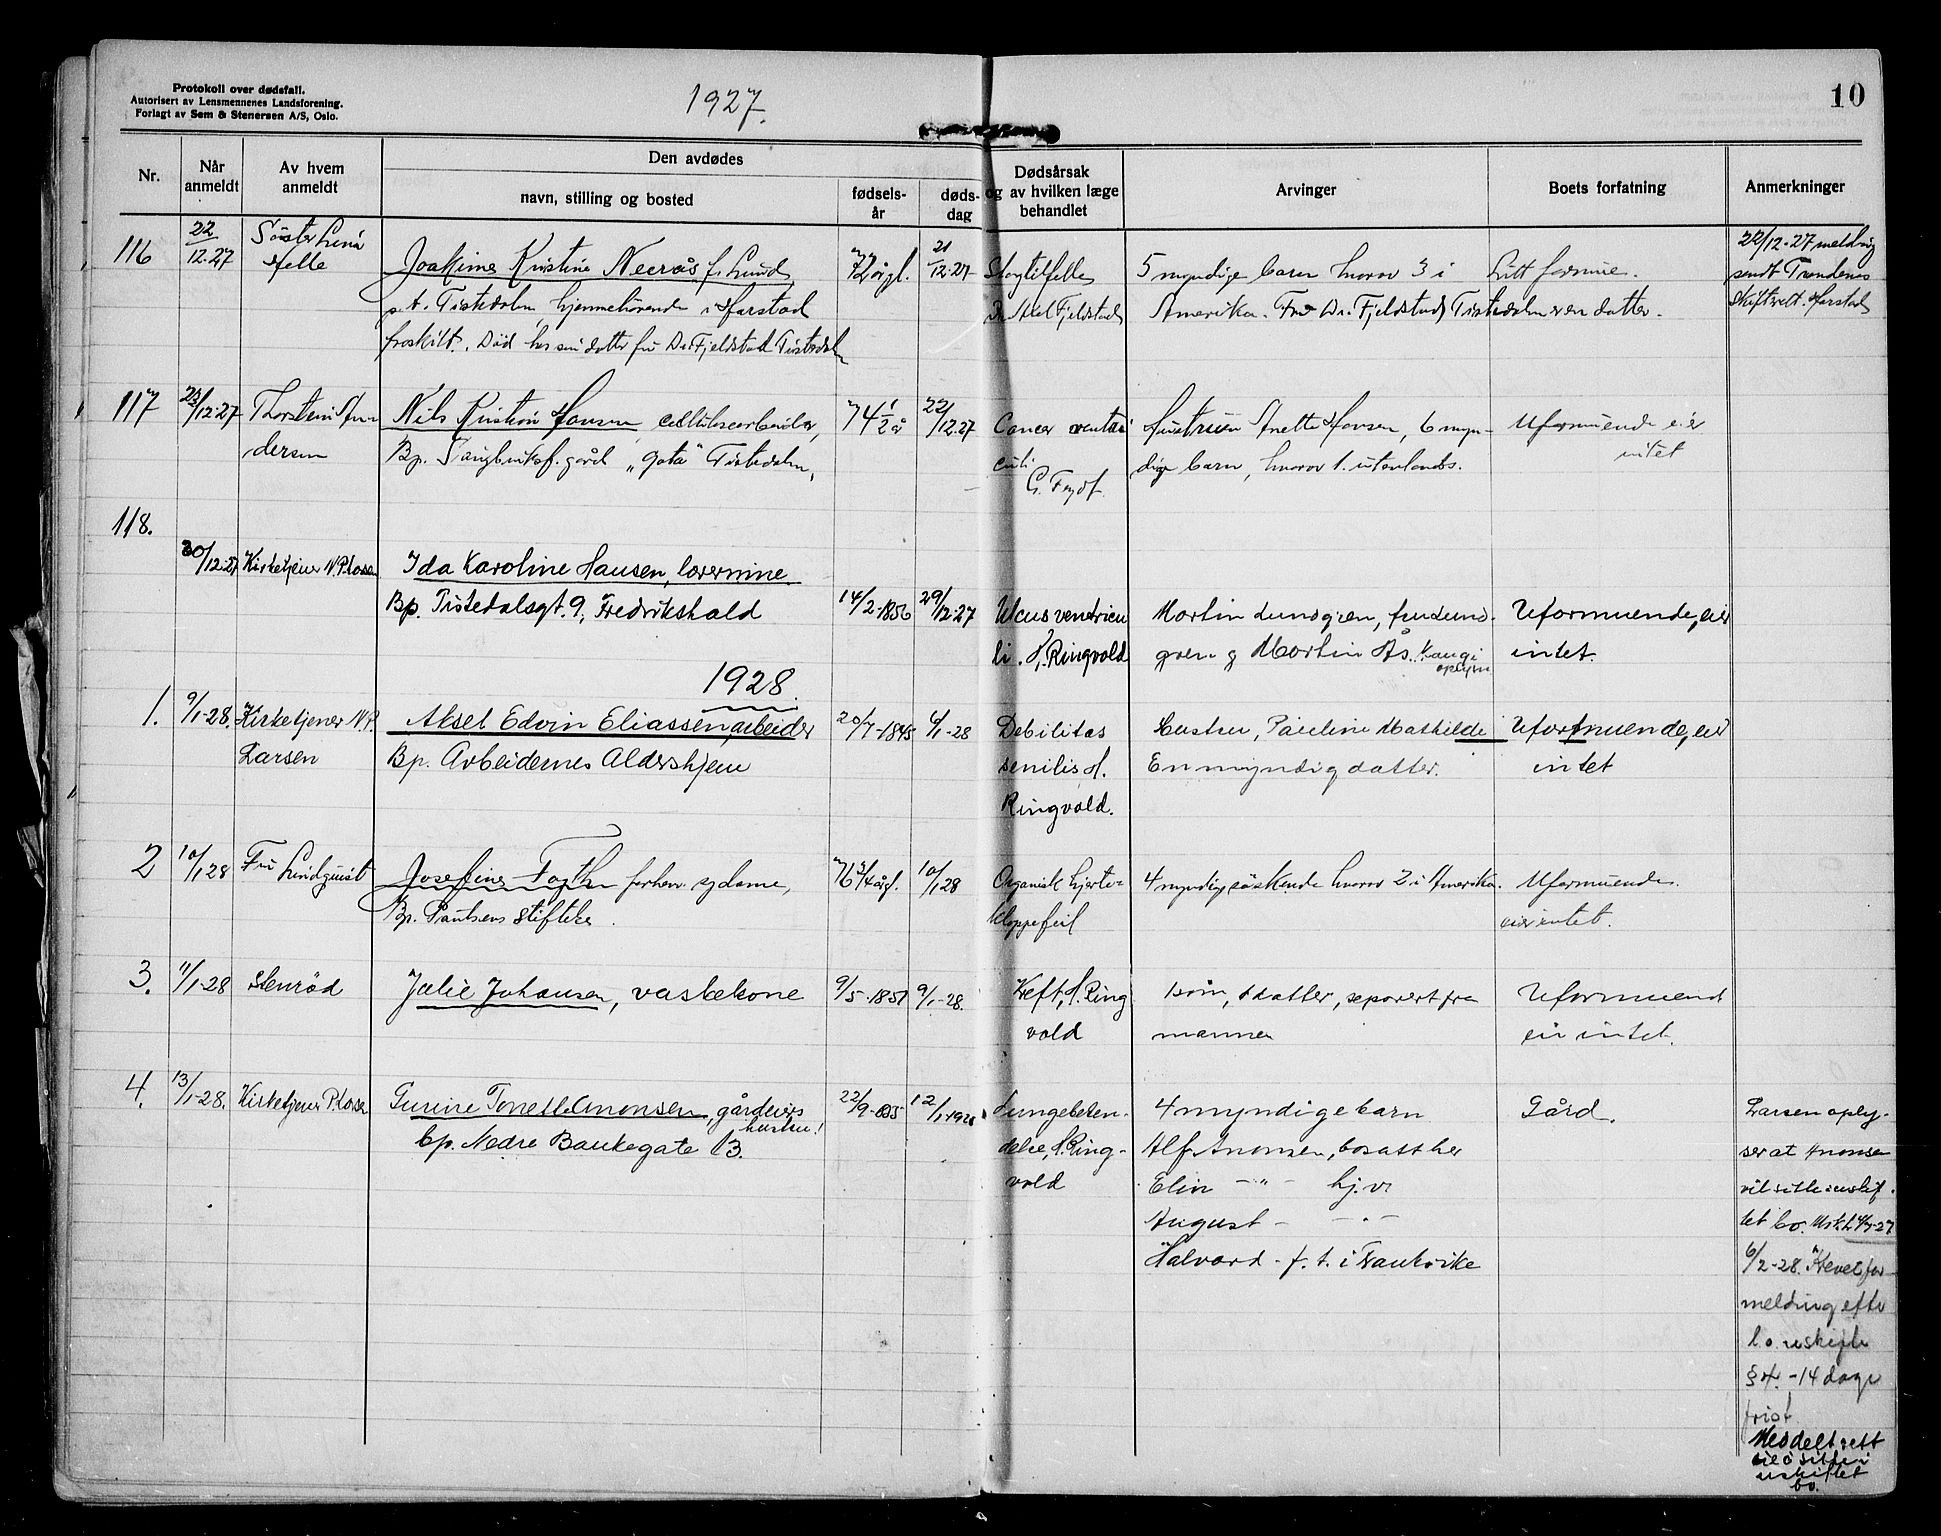 Protokoll over dødsfall.
Autorisert av Lensmennenes Landsforening.
Forlagt av Sem & Stenersen A/S, Oslo.
1927.
10
Nr.
Når anmeldt
Av hvem anmeldt
Den avdødes
navn, stilling og bosted
fødsels-år
døds-dag
Dødsårsak og av hvilken læge behandlet
Arvinger
Boets forfatning
Anmerkninger
116
22/12.27
Søster Lina
Joakime Kristine f. Lund
p.t. Tistedalen hjemmehörende i Harstad
fraskilt. Död hos sin datter fru Dr. Fjeldstad Tistedalen
72 årgl.
21/12-27
Slagtilfelle
Dr. Axel Fjeldstad
5 myndige barn hvorav 3 i
Amerika. Fru Dr. Fjeldstad Tistedalen er en datter.
Litt formue.
22/12-27 melding
sendt Trondenes
skifterett. Harstad
117
23/12-27
Thorstein An-
dersen
Nils Kristian Hansen, cellulosearbeider,
Bp. gård "Gata" Tistedalen,
74 1/2 år
22/12.27
Cancer ventri
culi
Hustruen Anette Hansen, 6 myn-
dige barn, hvorav 1. utenlands.
Uformuende eier
intet
118.
30/12-27
Kirketjener N.P. Larsen
Ida Karoline Hansen, lærerinne
Bp. Tistedalsgt. 9, Fredrikshald
14/2-1856
29/12-27
Ulcus ventricu
li. H. Ringvold
Martin Lundgren, fru Lund-
gren og Martin Ås.
Uformuende, eier
intet.
1928.
1.
9/1-28.
Kirketjener N.P.
Larsen
Aksel Edvin Eliassen, arbeider
Bp. Arbeidernes Aldershjem
20/7-1845
6/1-28
Debilitas
senilis H.
Ringvold.
Hustru, Pauline Mathilde
En myndig datter.
Uformuende, eier
intet
2
10/1 28
Fru Lindquist
Josefine forhen. sydame,
Bp. Paulsens Stiftelse
76 3/4 årgl.
10/1 28
Organisk hjerte-
klappefeil
4 myndige söskende hvorav 2 i Amerika.
Uformuende.
eier intet.
3.
11/1-28
Stenröd
Julie Johansen, vaskekone
9/5-1851
9/1-28.
Kreft, H. Ring
vold
1 sön, 1 datter, separert fra
mannen
Uformuend
eier intet.
4.
13/1-28.
Kirketjener P. Larsen
Gurine Tonette Amonsen, gårdeiers
hustru!
bp. Nedre Bankegate 13.
22/9-1855
12/1-1928
Lungebeten-
delse, H. Ring-
vold
4 myndige barn
Alf Amonsen, bosatt her
Elin - " - hj.v.
August - - " -
Halvard - f. t. i Frankrike
Gård.
Larsen oply-
ser at Amonsen
vil sitte i uskif-
tet bo.
6/2-28. Krevet for
melding efter
l. o. uskifte
§ 4. - 14 dage
frist
Meddelt rett
til å sitte i
uskiftet
bo.